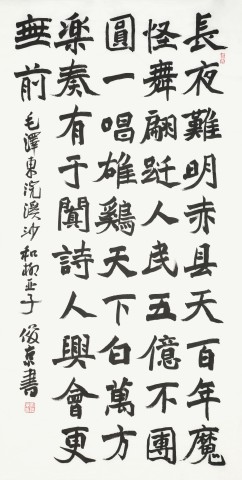 長夜難明赤县天百年魔
怪舞翩跹人民五億不團
圓一唱雄鷄天下白萬方
樂奏有于闐詩人興會更
無前
毛澤東浣溪沙和柳亚子 俊京書